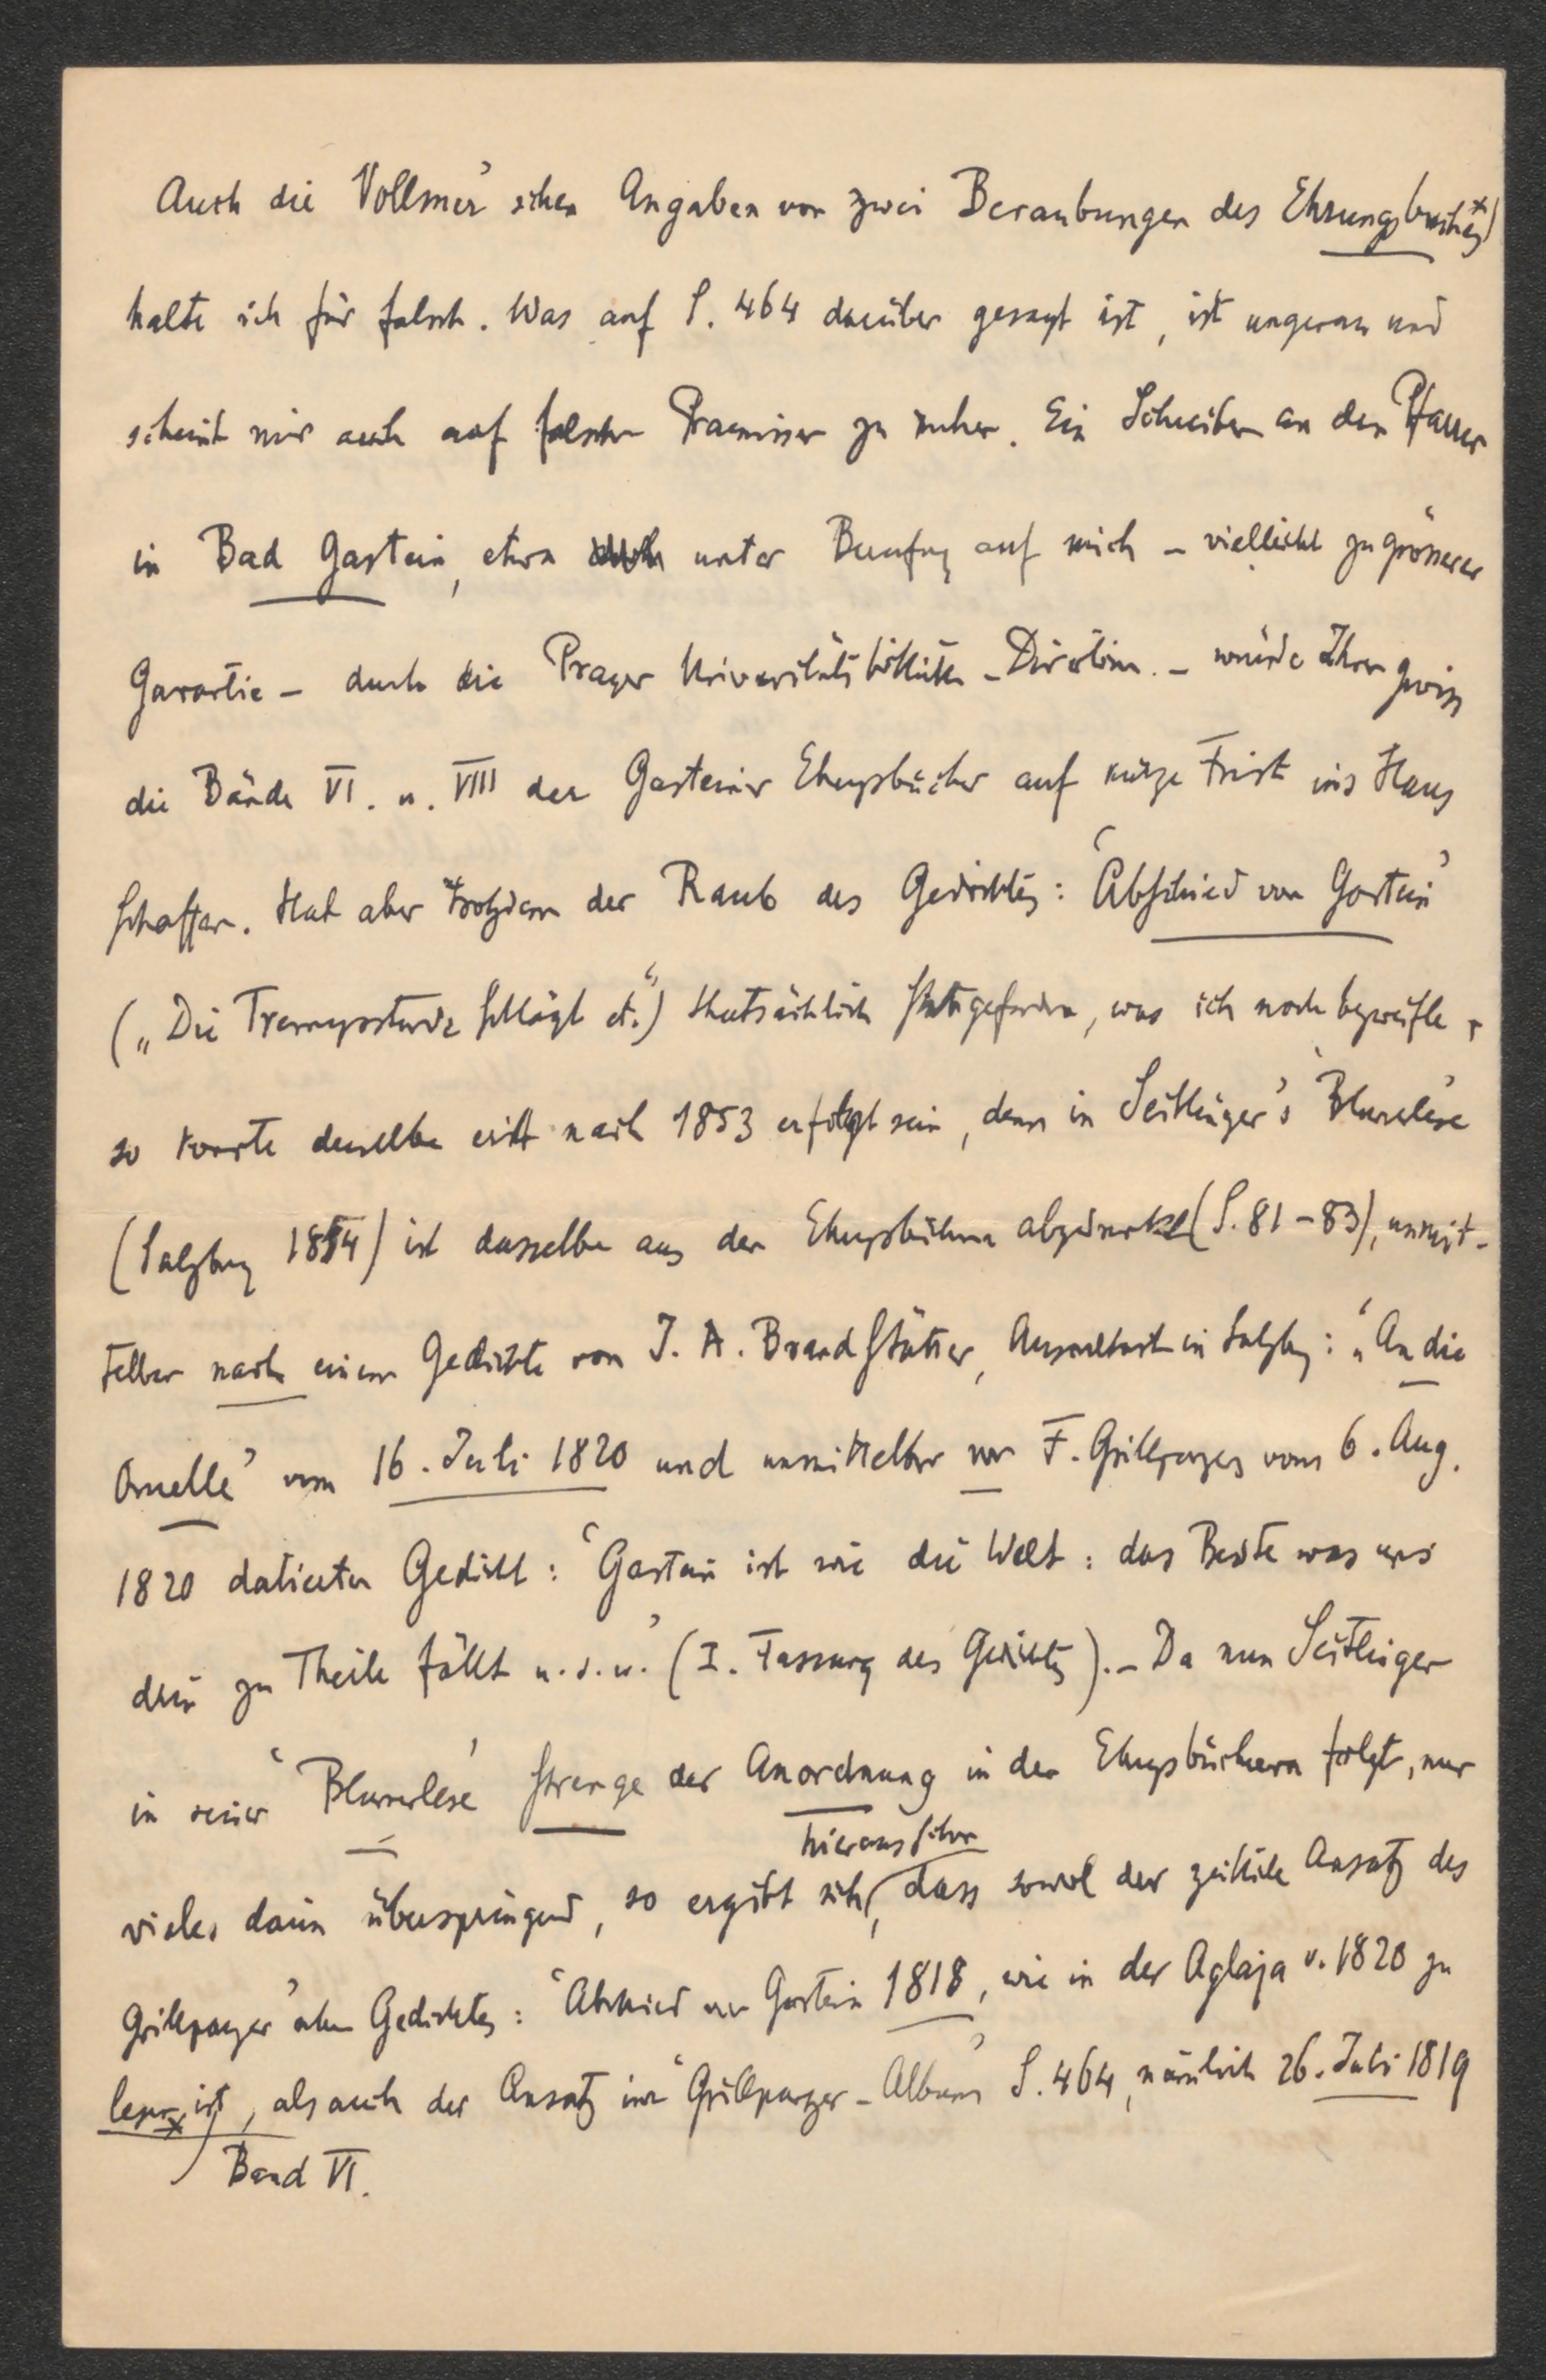 Auch die Vollmer'schen Angaben von zwei Beraubungen des Ehrungsbuches x)
halte ich für falsch. Was auf S. 464 darüber gesagt ist, ist ungenau und
scheint mir auch auf falschen Praemissen zu ruhen. Ein Schreiben an den Pfarrer
in Bad Gastein, etwa unter Berufung auf mich – vielleicht zu grösserer
Garantie – durch die Prager Universitätsbibliothek-Direction. – würde Ihnen gewiss
die Bände VI. u. VIII der Gasteiner Ehrungsbücher auf kurze Frist ins Haus
schaffen. Hat aber trotzdem der Raub des Gedichtes: 'Abschied von Gastein'
(„Die Trennungsstunde schlägt etc.“) thatsächlich stattgefunden, was ich noch bezweifle,
so konnte derselbe erst nach 1853 erfolgt sein, denn in Seitlinger's 'Blumenlese'
(Salzburg 1854) ist dasselbe aus den Ehrungsbüchern abgedruckt (S. 81-83), unmit-
telbar nach einem Gedichte von J. A. Brandstätter, in Salzburg: „An die
Quelle' vom 16. Juli 1820 und unmittelbar vor F. Grillparzers vom 6. Aug.
1820 datierten Gedicht: 'Gastein ist wie die Welt: das Beste was uns
drin zu Theile fällt u.s.w.' (I. Fassung des Gedichtes). – Da nun Seitlinger
in seiner 'Blumenlese' strenge der Anordnung in den Ehrungsbüchern folgt, nur
vieles darin überspringend, so ergibt sich hieraus schon, dass sowol der zeitliche Ansatz des
Grillparzer'schen Gedichtes: 'Abschied von Gastein 1818, wie in der Aglaja v. 1820 zu
lesen ist, als auch der Ansatz im 'Grillparzer-Album' S. 464, nämlich 26. Juli 1819
x) Band VI.